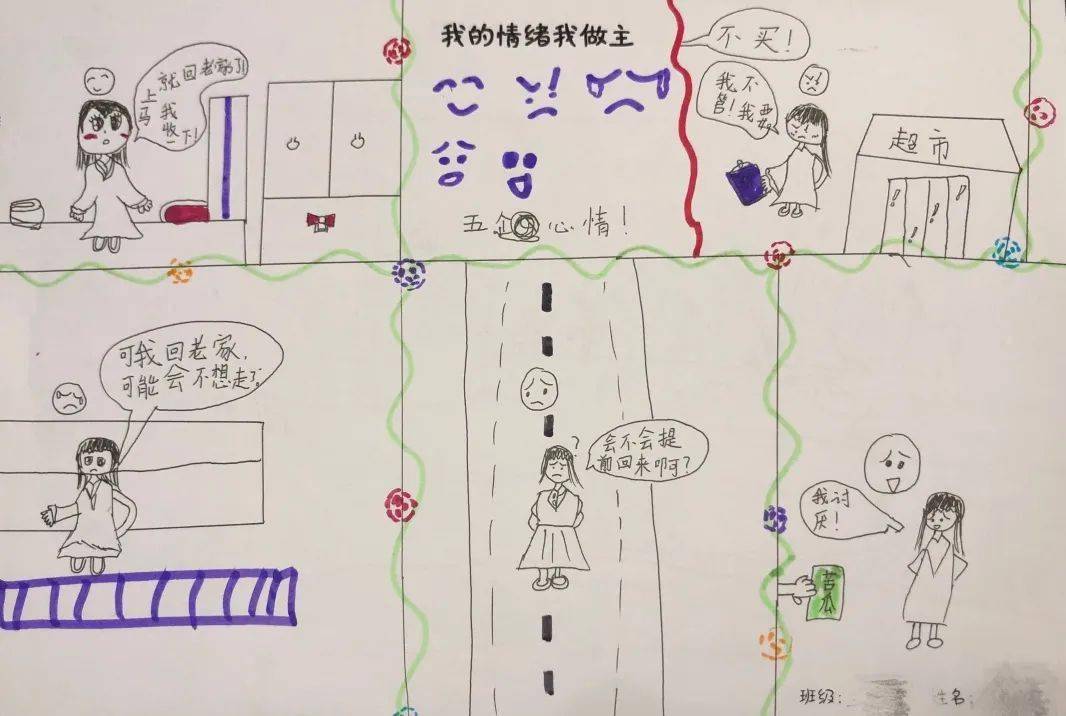 马上
就回老家了!
我收
一下!
我的情绪我做主
五个心情!
不买!
我不
管!我要
超市
可我回老家,
可能会不想走了。
?
会不会提
前回来啊?
我讨
厌!
苦
瓜
班级:
姓名: